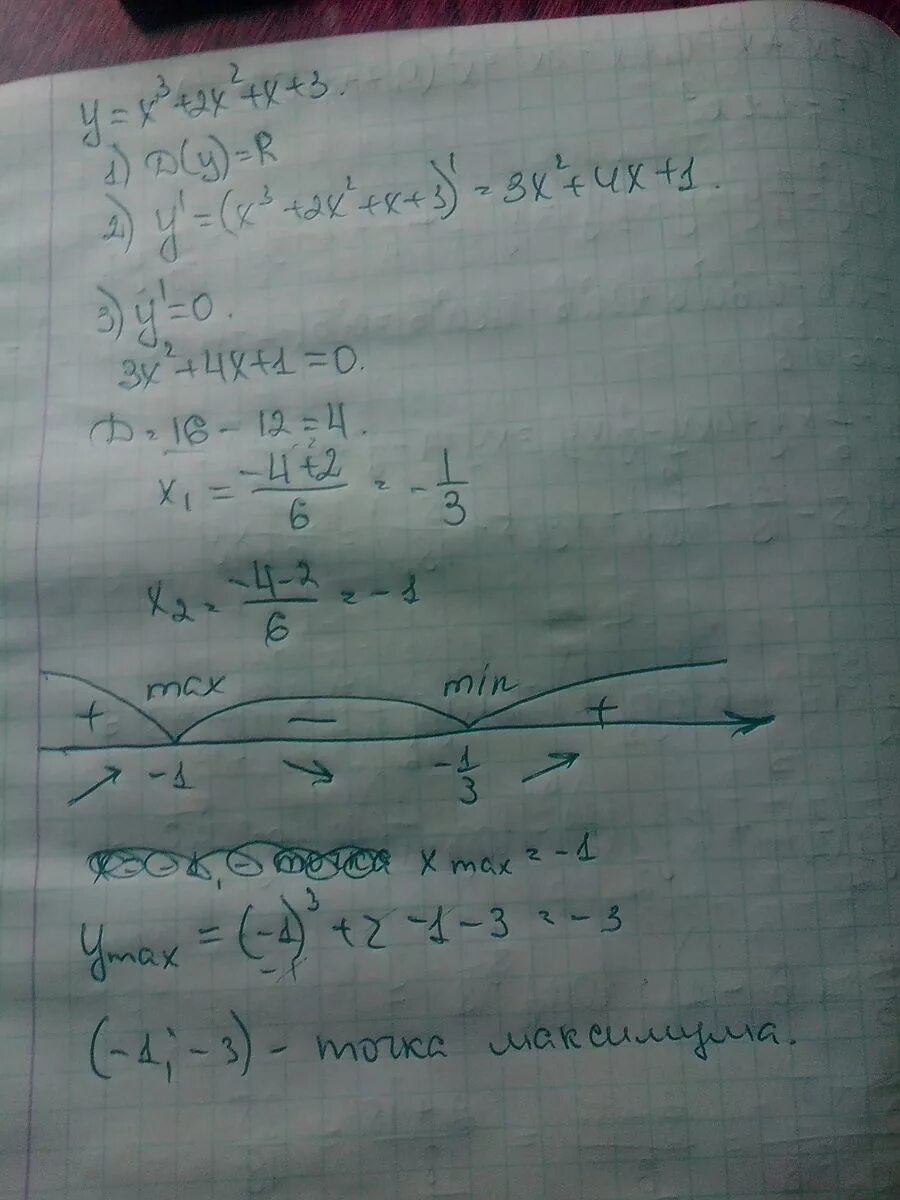 y = x³ + 2x² + x + 3.
1) D(y) = R
2) y' = (x³ + 2x² + x + 3)' = 3x² + 4x + 1.
3) y' = 0.
3x² + 4x + 1 = 0.
D = 16 - 12 = 4.
x₁ = (-4+2)/6 = -1/3
x₂ = (-4-2)/6 = -1
max min
+ − +
↗ -1 ↘ -1/3 ↗
x max = -1
y max = (-1)³ + 2 - 1 - 3 = -3
(-1; -3) - точка максимума.